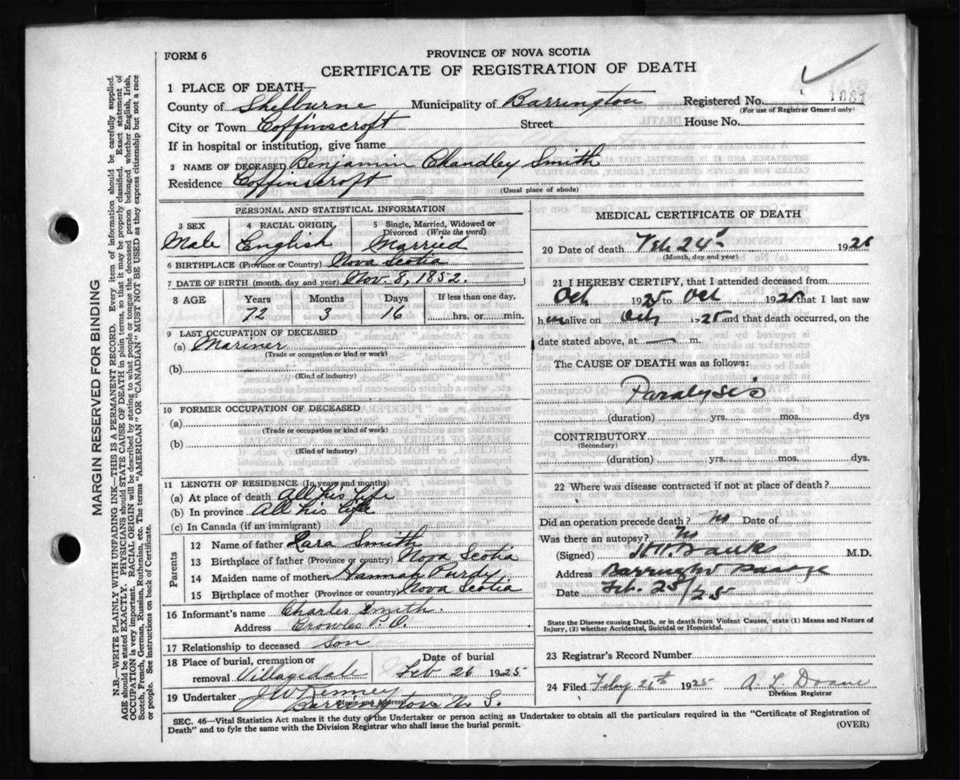 FORM 6
PROVINCE OF NOVA SCOTIA
CERTIFICATE OF REGISTRATION OF DEATH
1 PLACE OF DEATH
County of Shelburne Municipality of Barrington Registered No. 1083
(For use of Registrar General only)
City or Town Coffinscroft Street House No.
If in hospital or institution, give name
2 NAME OF DECEASED Benjamin Chandley Smith
Residence Coffinscroft
(Usual place of abode)
PERSONAL AND STATISTICAL INFORMATION
3 SEX 4 RACIAL ORIGIN 5 Single, Married, Widowed or Divorced (Write the word)
Male English Married
6 BIRTHPLACE (Province or Country) Nova Scotia
7 DATE OF BIRTH (month, day and year) Nov. 8, 1852.
8 AGE Years Months Days If less than one day,
72 3 16 hrs. or min.
9 LAST OCCUPATION OF DECEASED
(a) Mariner
(Trade or occupation or kind or work)
(b)
(Kind of industry)
10 FORMER OCCUPATION OF DECEASED
(a)
(Trade or occupation or kind or work)
(b)
(Kind of industry)
11 LENGTH OF RESIDENCE (In years and months)
(a) At place of death All his life
(b) In province All his life
(c) In Canada (if an immigrant)
Parents
12 Name of father Smith
13 Birthplace of father (Province or country) Nova Scotia
14 Maiden name of mother Hannah Purdy
15 Birthplace of mother (Province or country) Nova Scotia
16 Informant's name Charles Smith.
Address Crowles P.O.
17 Relationship to deceased Son
18 Place of burial, cremation or removal Villagedale Date of burial Feb 26 1925
19 Undertaker J W Kenney
Barrington N. S.
MEDICAL CERTIFICATE OF DEATH
20 Date of death Feb 24 1925
(Month, day and year)
21 I HEREBY CERTIFY, that I attended deceased from
Oct 1925 to Oct 1925 that I last saw
him alive on Oct 1925 and that death occurred, on
date stated above, at — m.
The CAUSE OF DEATH was as follows:
Paralysis
(duration) yrs. mos. dys
CONTRIBUTORY
(Secondary)
(duration) yrs. mos. dys.
22 Where was disease contracted if not at place of death?
Did an operation precede death? no Date of
Was there an autopsy? no
(Signed) M.D.
Address Barrington Passage
Date Feb. 25/25
State the Disease causing Death, or in death from Violent Causes, state (1) Means and Nature of
Injury, (2) whether Accidental, Suicidal or Homicidal.
23 Registrar's Record Number
24 Filed Feby 26th 1925 A. L. Doane
Division Registrar
SEC. 46—Vital Statistics Act makes it the duty of the Undertaker or person acting as Undertaker to obtain all the particulars required in the "Certificate of Registration of
Death" and to fyle the same with the Division Registrar who shall issue the burial permit. (OVER)
MARGIN RESERVED FOR BINDING
N.B.—WRITE PLAINLY WITH UNFADING INK—THIS IS A PERMANENT RECORD. Every item of information should be carefully supplied.
AGE should be stated EXACTLY. PHYSICIANS should STATE CAUSE OF DEATH in plain terms, so that it may be properly classified. Exact statement of
OCCUPATION is very important. RACIAL ORIGIN will be described by stating to what people or tongue the deceased person belonged whether English, Irish,
Scotch, French, German, Russian, Ruthenian, etc. The terms "AMERICAN" OR "CANADIAN" MUST NOT BE USED as they express citizenship but not a race
or people. See instructions on back of Certificate.